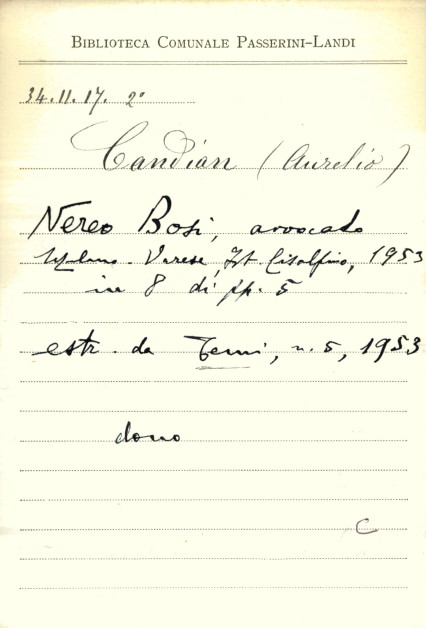 BIBLIOTECA COMUNALE PASSERINI-LANDI
34.11.17. 2°
Candian (Aurelio)
Nereo Bosi, avvocato
Milano-Varese, Ist. Cisalpino, 1953
in 8 di pp. 5
estr. da Temi, n. 5, 1953
dono
C